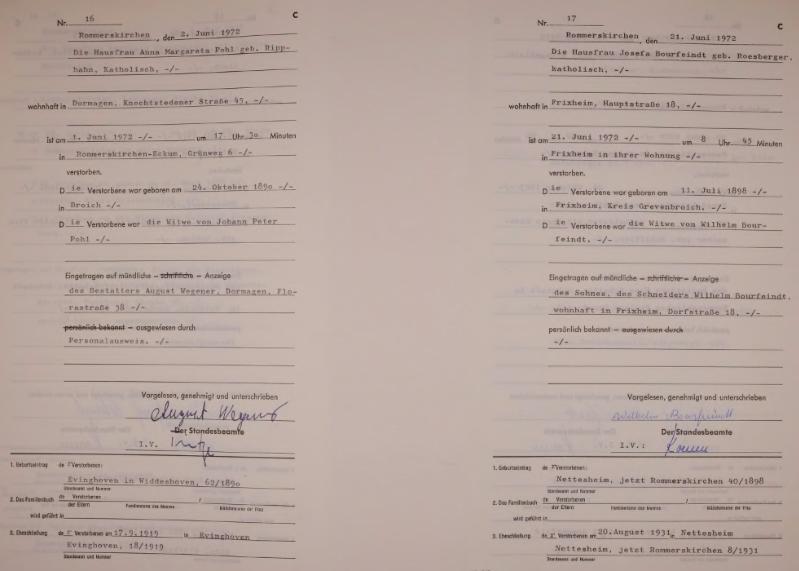 Nr. 16
C
Rommerskirchen, den 2. Juni 1972
Die Hausfrau Anna Margareta Pohl geb. Ripp-
hahn, Katholisch, -/-
wohnhaft in Dormagen, Knechtstedener Straße 45, -/-
ist am 1. Juni 1972 -/- um 17 Uhr 30 Minuten
in Rommerskirchen-Eckum, Grünweg 6 -/-
verstorben.
D ie Verstorbene war geboren am 24. Oktober 1890 -/-
in Broich -/-
D ie Verstorbene war die Witwe von Johann Peter
Pohl -/-
Eingetragen auf mündliche - schriftliche - Anzeige
des Bestatters August Wegener, Dormagen, Flo-
rastraße 38 -/-
persönlich bekannt - ausgewiesen durch
Personalausweis. -/-
Vorgelesen, genehmigt und unterschrieben
August Wegener
Der Standesbeamte
I.V.
1. Geburtseintrag de r Verstorbenen:
Evinghoven in Widdeshoven, 69/1890
Standesamt und Nummer
2. Das Familienbuch de Verstorbenen /
der Eltern Familienname des Mannes Mädchenname der Frau
wird geführt in
3. Eheschließung de r Verstorbenen am 17.9.1919 in Evinghoven
Evinghoven, 18/1919
Standesamt und Nummer
Nr. 17
C
Rommerskirchen, den 21. Juni 1972
Die Hausfrau Josefa Bourfeindt geb. Roesberger,
katholisch, -/-
wohnhaft in Frixheim, Hauptstraße 18, -/-
ist am 21. Juni 1972 -/- um 8 Uhr 45 Minuten
in Frixheim in ihrer Wohnung -/-
verstorben.
D ie Verstorbene war geboren am 11. Juli 1898 -/-
in Frixheim, Kreis Grevenbroich. -/-
D ie Verstorbene war die Witwe von Wilhelm Bour-
feindt. -/-
Eingetragen auf mündliche - schriftliche - Anzeige
des Sohnes, des Schneiders Wilhelm Bourfeindt,
wohnhaft in Frixheim, Dorfstraße 18, -/-
persönlich bekannt - ausgewiesen durch
-/-
Vorgelesen, genehmigt und unterschrieben
Wilhelm Bourfeindt
Der Standesbeamte
I.V.:
1. Geburtseintrag de r Verstorbenen:
Nettesheim, jetzt Rommerskirchen 40/1898
Standesamt und Nummer
2. Das Familienbuch de Verstorbenen /
der Eltern Familienname des Mannes Mädchenname der Frau
wird geführt in
3. Eheschließung de r Verstorbenen am 20.August 1931 in Nettesheim
Nettesheim, jetzt Rommerskirchen 8/1931
Standesamt und Nummer